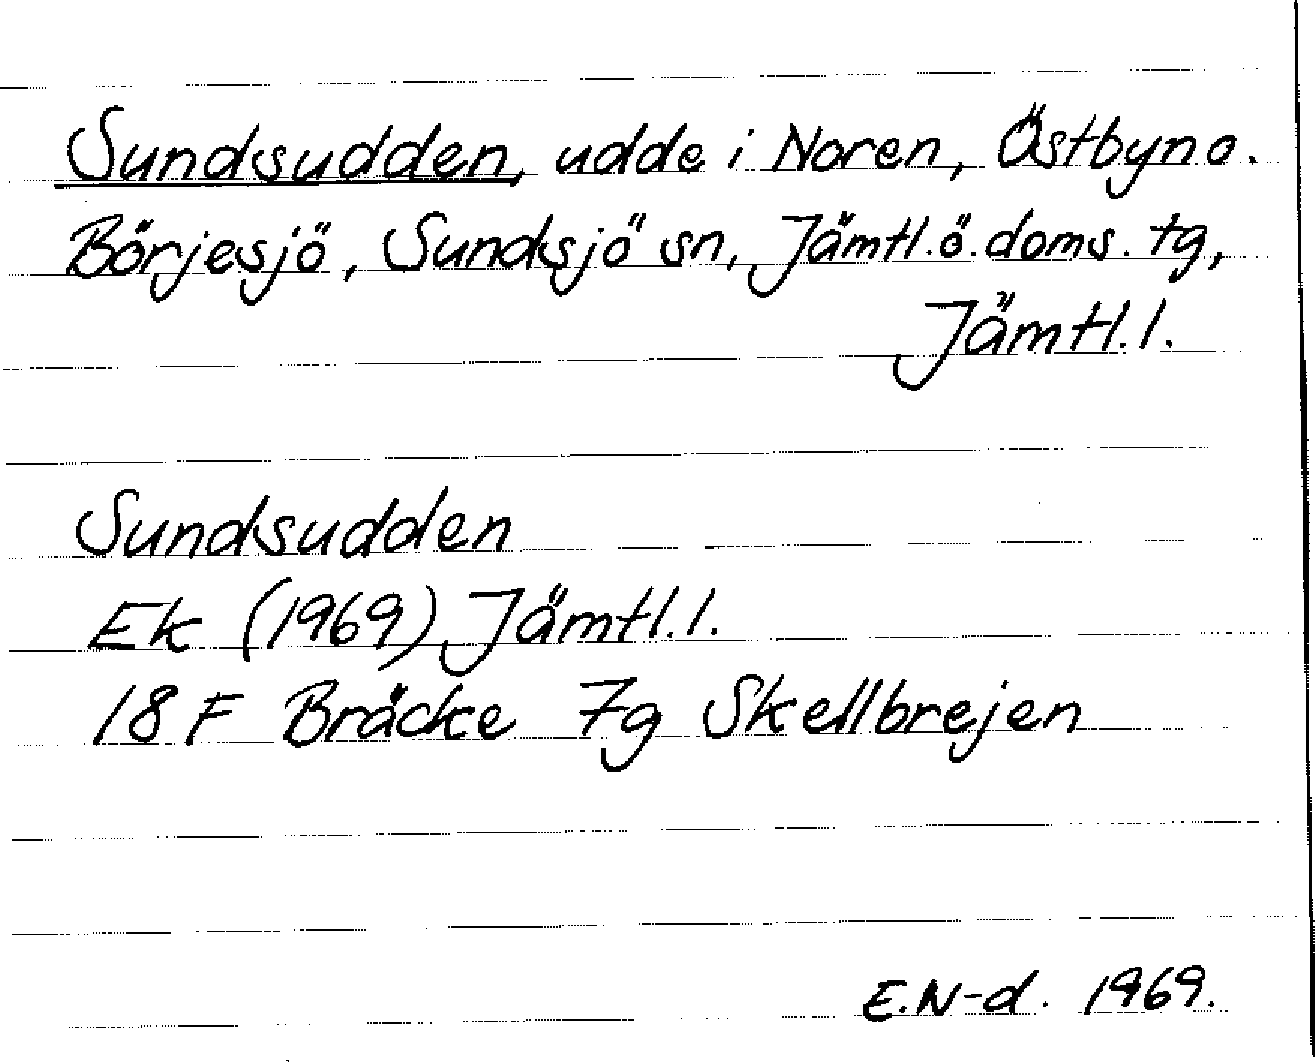 Sundsudden, udde i Noren, Östbyn o.
Börjesjö, Sundsjö sn, Jämtl.ö.doms.tg,
Jämtl.l.
Sundsudden
Ek (1969) Jämtl.l.
18 F Bräcke 7g Skellbrejen
E.N-d. 1969.